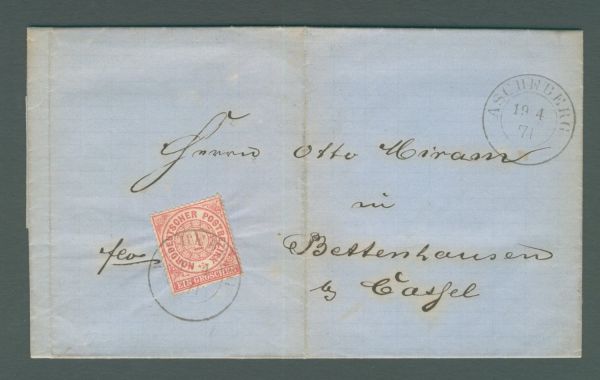 ASCHEBERG
19 4
71
Herrn Otto Hiram
in
flo
Bettenhausen
b/ Cassel
NORDDEUTSCHER POSTBEZIRK
1
EIN GROSCHEN